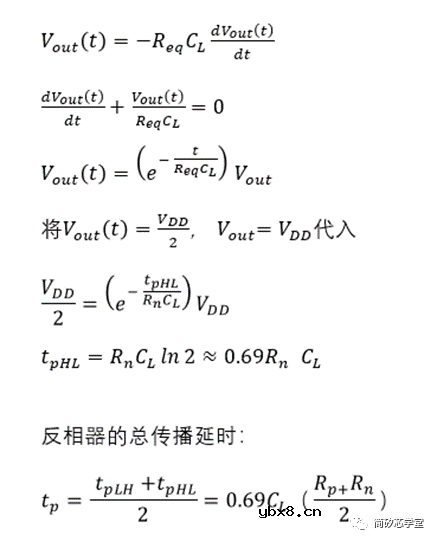 V_{out}(t) = −R_{eq}C_L \frac{dV_{out}(t)}{dt}
\frac{dV_{out}(t)}{dt} + \frac{V_{out}(t)}{R_{eq}C_L} = 0
V_{out}(t) = \left(e^{-\frac{t}{R_{eq}C_L}}\right) V_{out}
将V_{out}(t) = \frac{V_{DD}}{2}, V_{out}= V_{DD}代入
\frac{V_{DD}}{2} = \left(e^{-\frac{t_{pHL}}{R_nC_L}}\right) V_{DD}
t_{pHL} = R_nC_L ln 2 ≈ 0.69R_n C_L
反相器的总传播延时：
t_p = \frac{t_{pLH}+t_{pHL}}{2} = 0.69C_L (\frac{R_{p+}R_n}{2})
ybx8.cn
简矽芯学堂